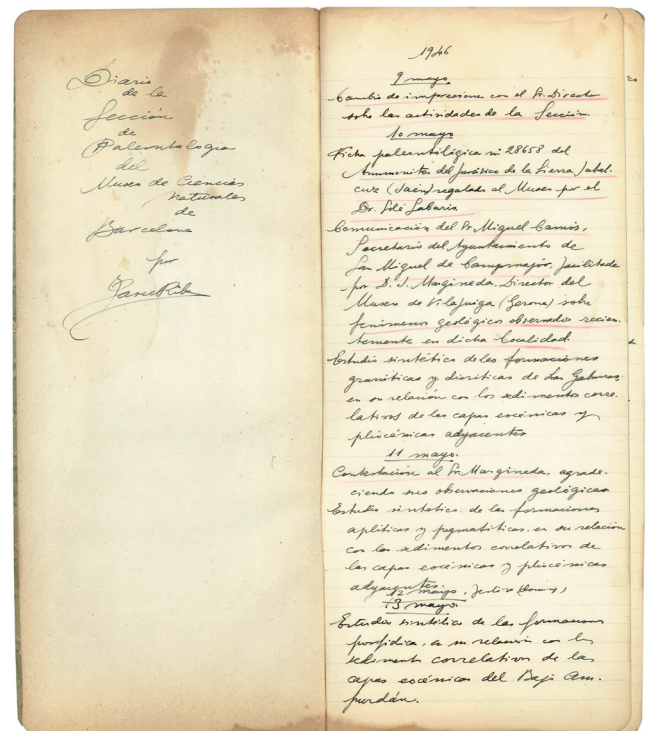 Diario
de la
Sección
de
Paleontologia
del
Museo de Ciencias
Naturales
de
Barcelona
por
1
1946
9 mayo
Cambio de impresiones con el Sr. Director
sobre las actividades de la Sección.
10 mayo
Ficha paleontológica nº 28658 del
Ammonites del Jurásico de la Sierra Jabal-
cuz (Jaén) regalado al Museo por el
Dr. Solé Sabaris
Comunicación del Sr. Miguel Camós,
Secretario del Ayuntamiento de
San Miguel de Campmajor, facilitada
por D. J. Margineda, Director del
Museo de Vilajuiga (Gerona) sobre
fenómenos geológicos observados recien-
temente en dicha localidad.
Estudio sintético de las formaciones
graníticas y dioríticas de Las Gabarras,
en su relación con los sedimentos corre-
lativos de las capas eocénicas y
pliocénicas adyacentes
11 mayo.
Contestación al Sr. Margineda, agrade-
ciendo sus observaciones geológicas
Estudio sintético de las formaciones
aplíticas y pegmatíticas, en su relación
con los sedimentos correlativos de
las capas eocénicas y pliocénicas
adyacentes.
12 mayo, festivo (Domingo)
13 mayo
Estudio sintético de las formaciones
porfídica, en su relación con los
sedimentos correlativos de las
capas eocénicas del Bajo Am-
purdán.